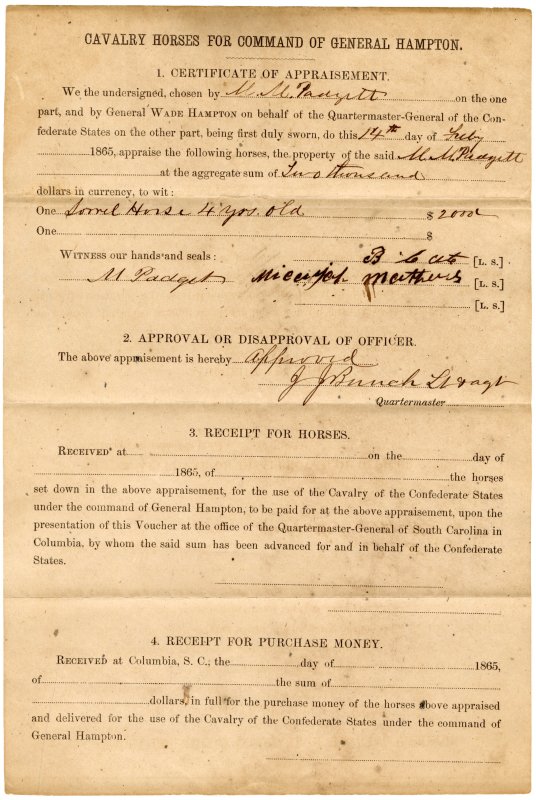 CAVALRY HORSES FOR COMMAND OF GENERAL HAMPTON.
1. CERTIFICATE OF APPRAISEMENT.
We the undersigned, chosen by M. M. Padgett on the one
part, and by General WADE HAMPTON on behalf of the Quartermaster-General of the Con-
federate States on the other part, being first duly sworn, do this 14th day of Feby
1865, appraise the following horses, the property of the said M. M Padgett
at the aggregate sum of Two thousand
dollars in currency, to wit:
One Sorrel Horse 4 yrs. old $ 2000
One $
WITNESS our hands and seals: B [L. S.]
M Padget Mathews [L. S.]
[L. S.]
2. APPROVAL OR DISAPPROVAL OF OFFICER.
The above appraisement is hereby approved
J J Bunch Lt & agt
Quartermaster
3. RECEIPT FOR HORSES.
RECEIVED at on the day of
1865, of the horses
set down in the above appraisement, for the use of the Cavalry of the Confederate States
under the command of General Hampton, to be paid for at the above appraisement, upon the
presentation of this Voucher at the office of the Quartermaster-General of South Carolina in
Columbia, by whom the said sum has been advanced for and in behalf of the Confederate
States.
4. RECEIPT FOR PURCHASE MONEY.
RECEIVED at Columbia, S. C., the day of 1865,
of the sum of
dollars, in full for the purchase money of the horses above appraised
and delivered for the use of the Cavalry of the Confederate States under the command of
General Hampton.